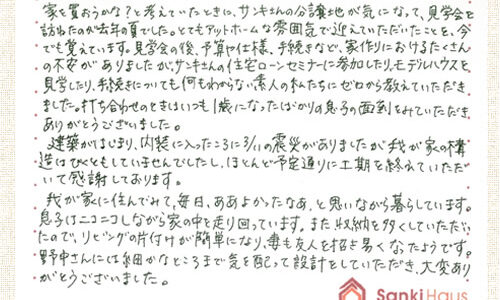 家を買おうかな？と考えていたときに、サンキさんの分譲地が気になって、見学会を
訪ねたのが去年の夏でした。とてもアットホームな雰囲気で迎えていただいたことを、今
でも覚えています。見学会の後、予算や仕様、手続きなど、家作りにおけるたくさん
の不安がありましたが、サンキさんの住宅ローンセミナーに参加したり、モデルハウスを
見学したり、手続きについても何もわからない素人の私たちにゼロから教えていただき
ました。打ち合わせのときはいつも1歳になったばかりの息子の面倒をみていただき、
ありがとうございました。
建築がはじまり、内装に入ったころに3/11の震災がありましたが、我が家の構
造はびくともしていませんでしたし、ほとんど予定通りに工期を終えていただ
いて感謝しております。
我が家に住んでみて、毎日、ああよかったなあ、と思いながら暮らしています。
息子はニコニコしながら家の中を走り回っています。また収納を多くしていただい
たので、リビングの片付けが簡単になり、妻も友人を招き易くなったようです。
野中さんには細かなところまで気を配って設計をしていただき、大変あり
がとうございました。
Sanki Haus